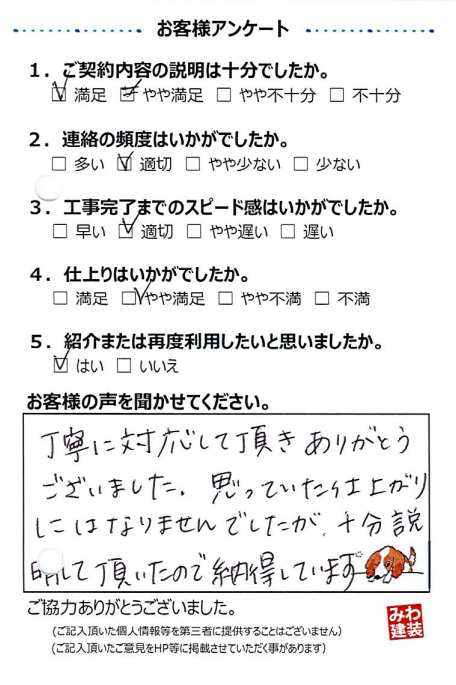 お客様アンケート
1. ご契約内容の説明は十分でしたか。
☑ 満足 ☑ やや満足 □ やや不十分 □ 不十分
2. 連絡の頻度はいかがでしたか。
□ 多い ☑ 適切 □ やや少ない □ 少ない
3. 工事完了までのスピード感はいかがでしたか。
□ 早い ☑ 適切 □ やや遅い □ 遅い
4. 仕上りはいかがでしたか。
□ 満足 ☑ やや満足 □ やや不満 □ 不満
5. 紹介または再度利用したいと思いましたか。
☑ はい □ いいえ
お客様の声を聞かせてください。
丁寧に対応して頂きありがとう
ございました。思っていた仕上がり
にはなりませんでしたが、十分説
明して頂いたので納得しています
ご協力ありがとうございました。
(ご記入頂いた個人情報等を第三者に提供することはございません)
(ご記入頂いたご意見をHP等に掲載させていただく事があります)
みわ
建装